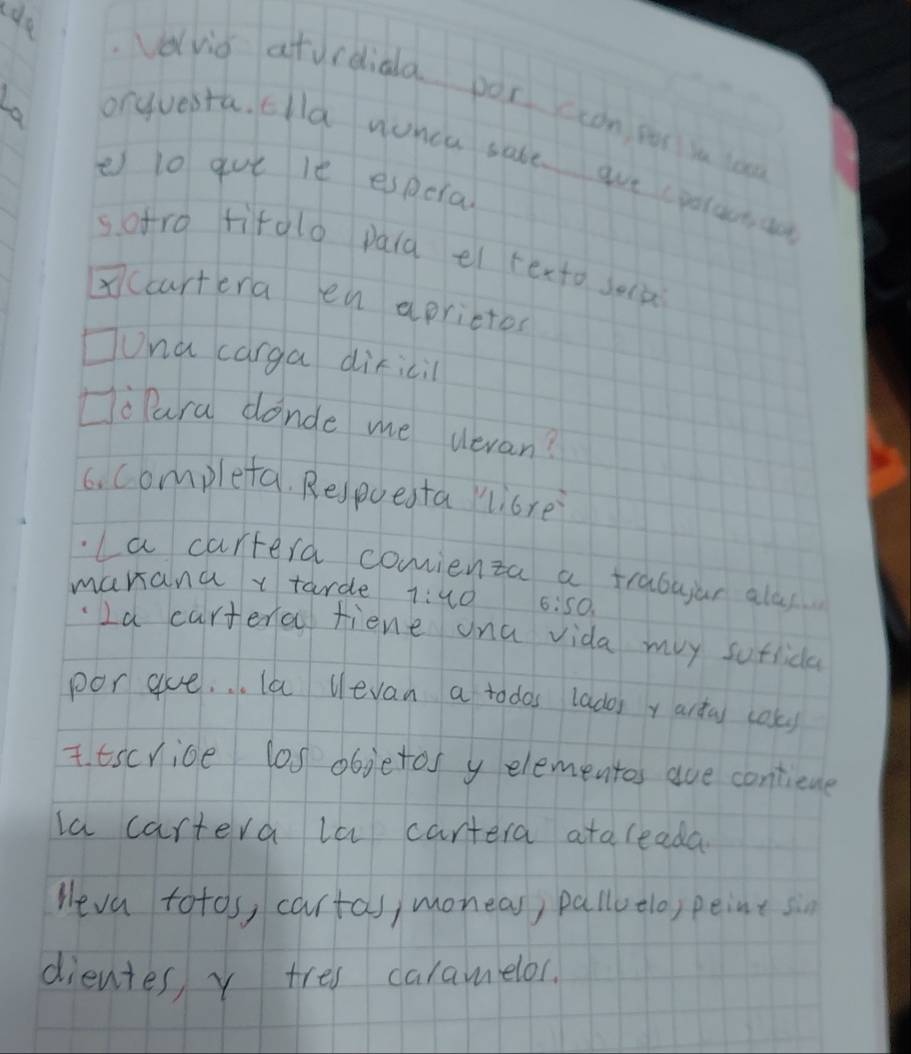 . Volvió aturdida por con, por la loca
orquesta. Ella nunca sabe que
es lo que le espera.
5. otro titolo para el texto seria
☒ Cartera en aprietos
☐ Una carga dificil
☐ ¿Para dónde me llevan?
6. Completa. Respuesta "libre"
. La cartera comienza a trabajar alas...
mañana y tarde 7:40 6:50.
. La cartera tiene una vida muy sufrida
por que... la llevan a todos lados y
7. Escribe los objetos y elementos que contiene
la cartera la cartera ataleada.
lleva fotos, cartas, moneas, palluelo, peine sin
dientes, y tres caramelos.